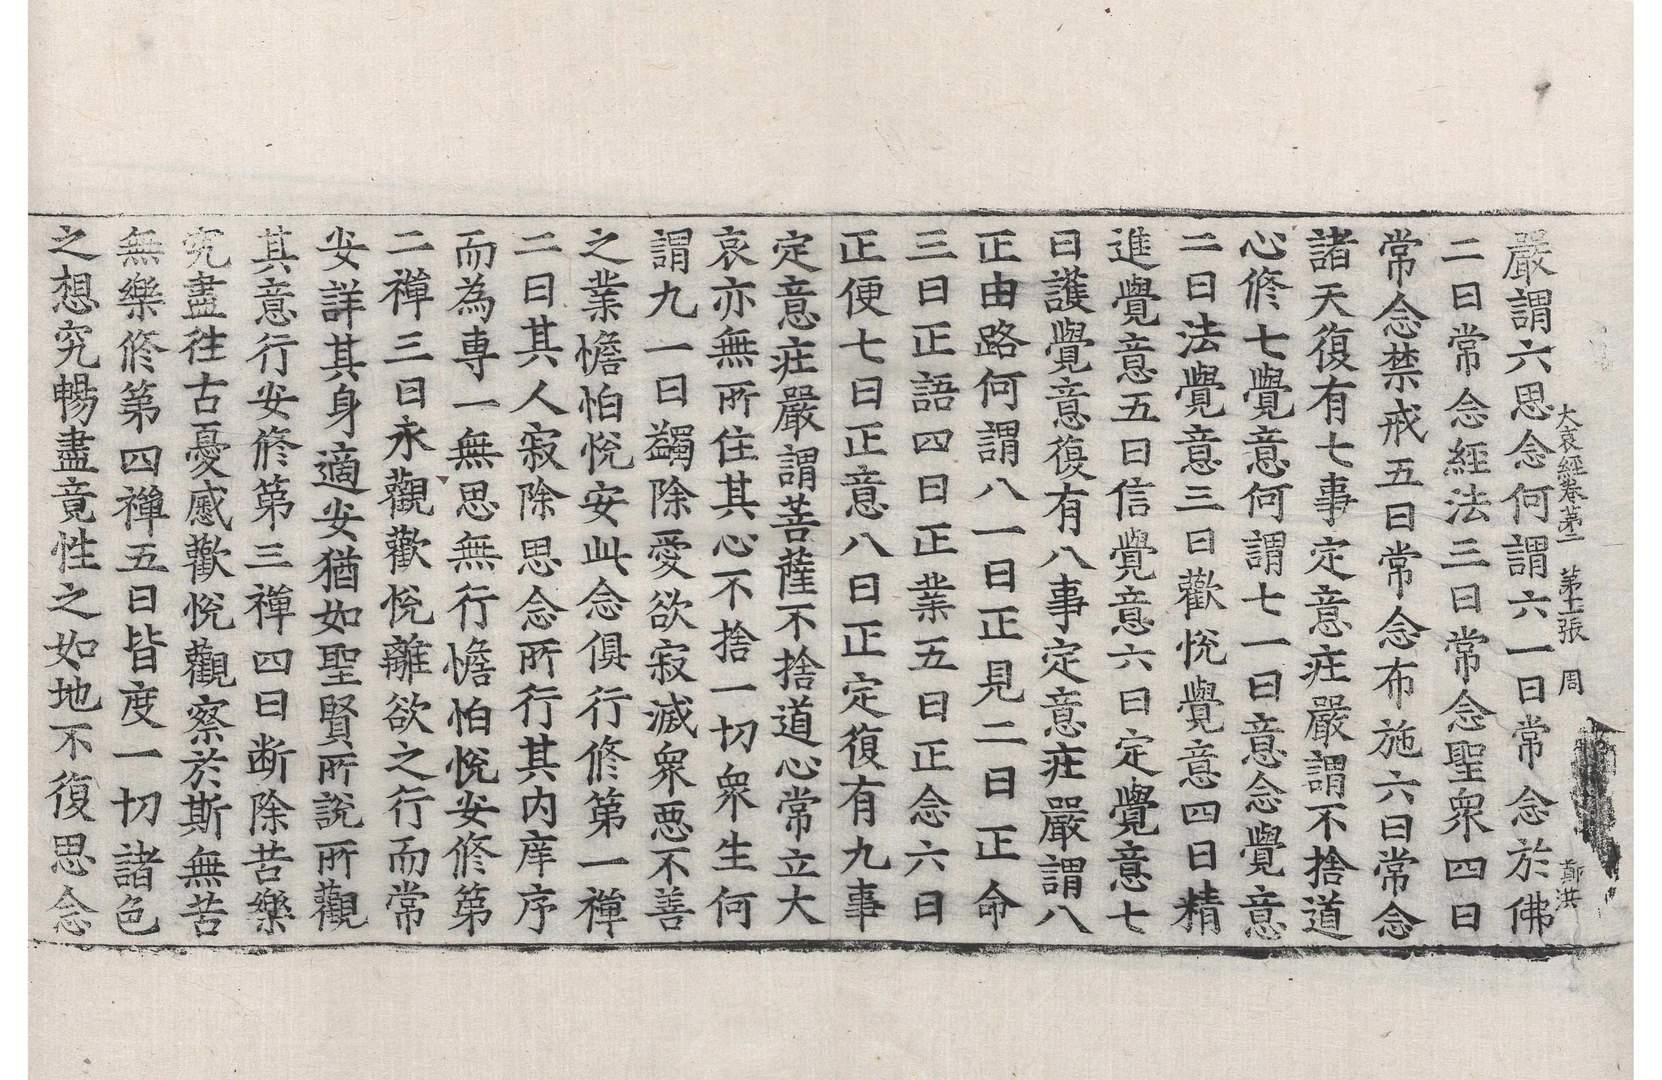 大哀經卷第二 第十二張 周
鄭洪
嚴謂六思念何謂六一曰常念於佛
二曰常念經法三曰常念聖衆四曰
常念禁戒五曰常念布施六曰常念
諸天復有七事定意庄嚴謂不捨道
心修七覺意何謂七一曰意念覺意
二曰法覺意三曰歡悅覺意四曰精
進覺意五曰信覺意六曰定覺意七
曰護覺意復有八事定意庄嚴謂八
正由路何謂八一曰正見二曰正命
三曰正語四曰正業五曰正念六曰
正便七曰正意八曰正定復有九事
定意庄嚴謂菩薩不捨道心常立大
哀亦無所住其心不捨一切衆生何
謂九一曰蠲除愛欲寂滅衆惡不善
之業憺怕悅安此念俱行修第一禪
二曰其人寂除思念所行其内庠序
而為專一無思無行憺怕悅安修第
二禪三曰永觀歡悅離欲之行而常
安詳其身適安猶如聖賢所說所觀
其意行安修第三禪四曰断除苦樂
究盡往古憂慼歡悅觀察於斯無苦
無樂修第四禪五曰皆度一切諸色
之想究暢盡竟性之如地不復思念